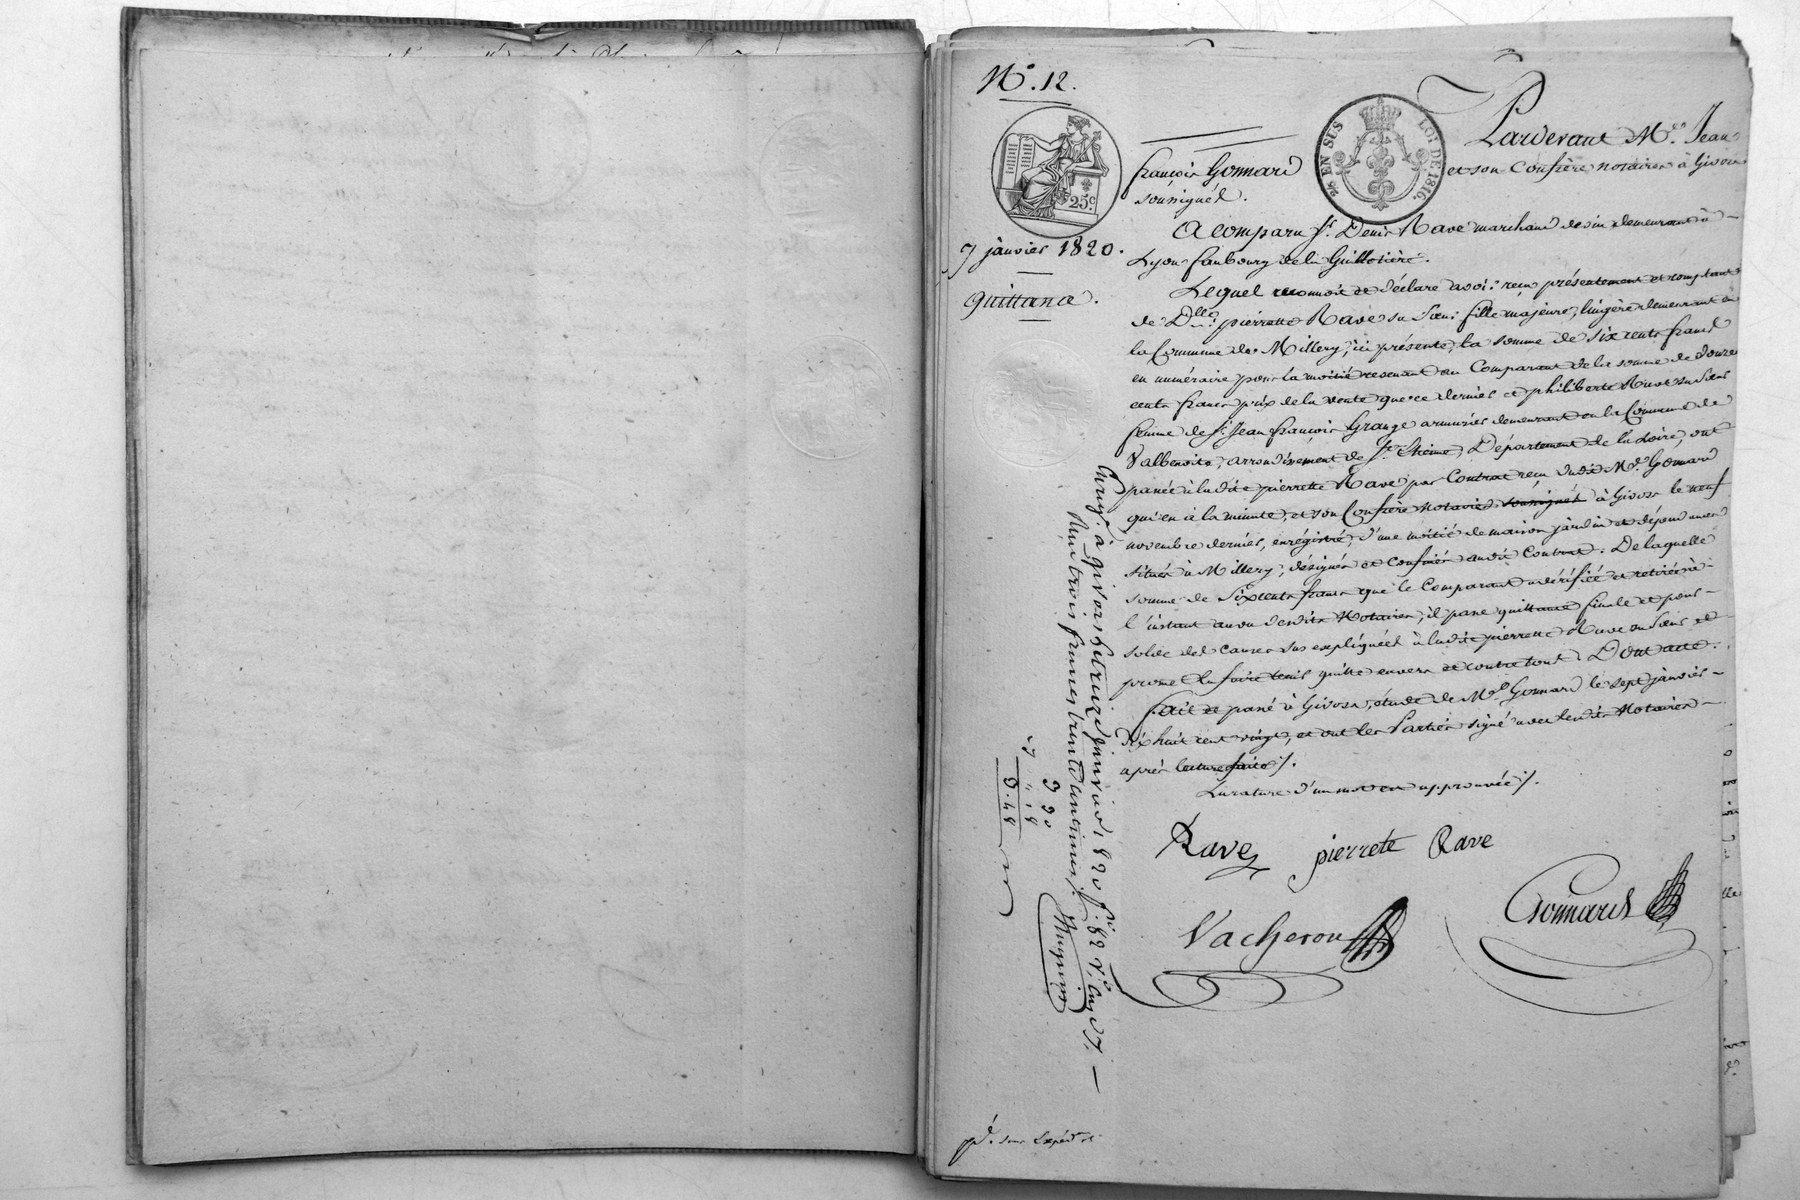 N.° 12.
25.c
2/10 EN SUS LOI DE 1816.
7 janvier 1820.
quittance.
Pardevant M.es Jean
françois Gonnard et son Confrère notaires à Givors
soussignés.
A comparu S.r Denis Rave marchand de vin demeurant à
Lyon faubourg de la Guillotière.
Lequel reconnoit et déclare avoir reçu présentement et comptant
de D.lle pierrette Rave sa Sœur fille majeure, lingère demeurant en
la Commune de Millery, ici présente, la somme de six cents francs
en numéraire pour la moitié revenant au Comparant de la somme de douze
cents francs prix de la vente que ce dernier et philiberte Rave sa Sœur
femme de S.r Jean françois Grange armurier demeurant en la Commune de
Valbenoite, arrondissement de S.t Etienne, Département de la Loire, ont
passée à ladite pierrette Rave par Contrat reçu dudit M.e Gonnard
qui en a la minute, et son Confrère Notaires soussignés à Givors le neuf
novembre dernier, enrégistré, d'une moitié de maison jardin et dépendances
situés à Millery, désignés et confinés audit contrat. De laquelle
somme de Six cents francs que le Comparant a vérifiée et retirée à
l'instant au vu desdits Notaires, il passe quittance finale et pour
solde des causes sus expliquées à ladite pierrette Rave sa Sœur et
promet la faire tenir quitte envers et contre tous. Dont acte.
fait et passé à Givors, étude de M.e Gonnard le sept janvier
dix huit cent vingt, et ont les Parties signé avec lesdits Notaires
après lecture faite ./.
La rature d'un mot est approuvée ./.
Rave pierrete Rave
Vacheron Gonnard
Enreg. à givors le treize janvier 1820 f.° 82 v.°
Reçu trois francs trente centimes
3 30
" 18
3.48